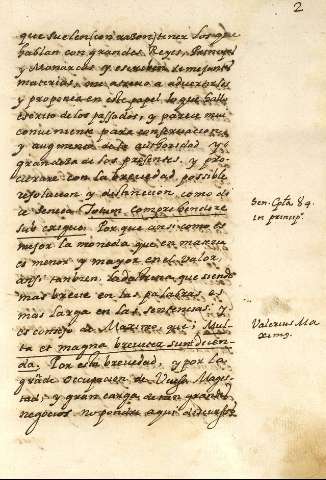 2
que suelen (con razon) tener los que
hablan con grandes Reyes, Principes
y Monarcas y escriven semejantes
materias, me atrevo a advertirles
y proponer en este papel lo que halle
escrito de los passados, y parece muy
conveniente para conservacion
y augmento de la authoridad y
grandeza de los presentes, y pro
curare con la brevedad possible
resolucion y distincion como di
ce Seneca Totum comprehendere
sub exiguo. Porque ansi como es
mejor la moneda que en materia
es menor y mayor en el valor
ansi tanbien la doctrina que siendo
mas breve en las palabras es
mas larga en las sentencias, y
es consejo de Maximo que Mul
ta et magna breviter sunt dicen
da. Por esta brevedad, y por la
grãde ocupacion de Vuesa Mages
tad, y gran carga de tan grandes
negocios no pondre aqui discursos
Sen. Epta 84.
in princip.
Valerius Ma
ximus.